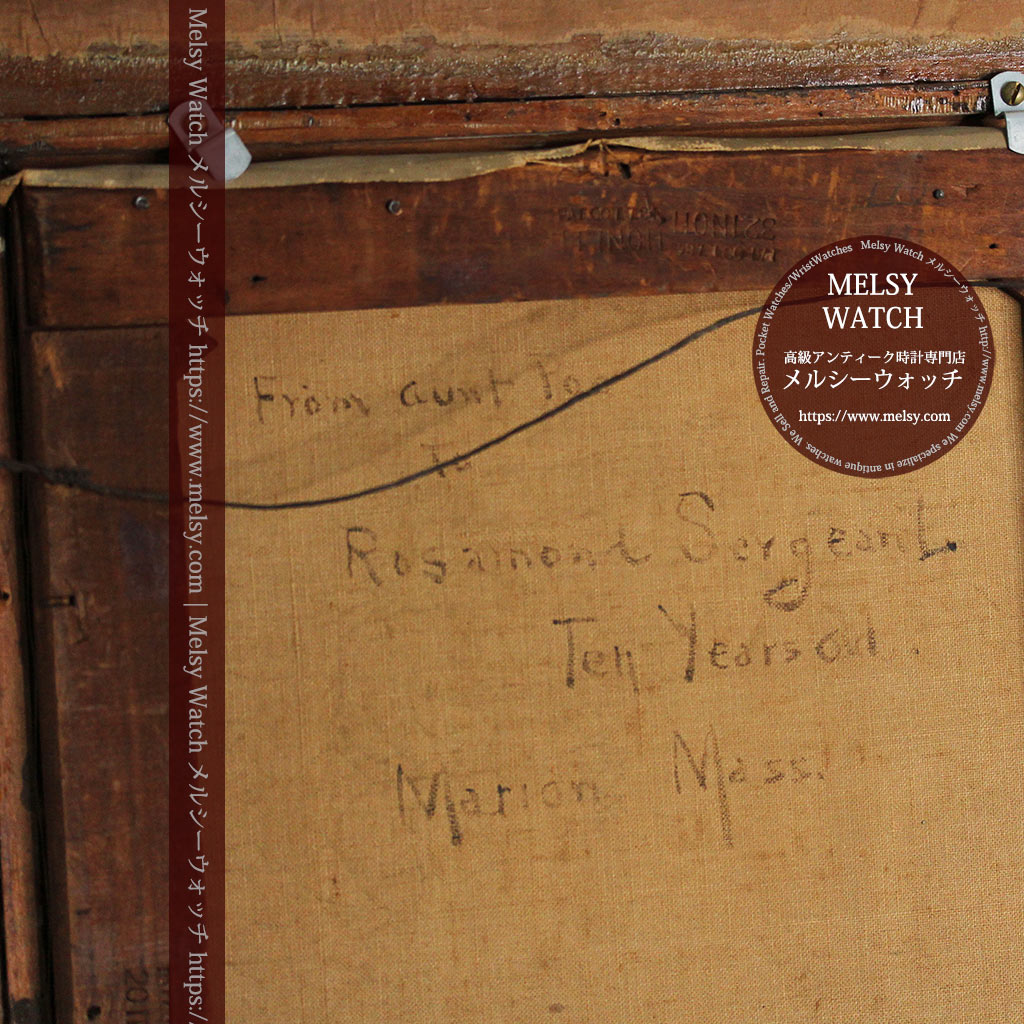 From aunt To
To
Rosamond Sergeant.
Ten Years Old.
Marion Mass.
MELSY
WATCH
高級アンティーク時計専門店
メルシーウォッチ
https://www.melsy.com
Melsy Watch メルシーウォッチ http://www.melsy.com We specialize in antique watches. We Sell and Repair. Pocket Watches/WristWatches
Melsy Watch メルシーウォッチ https://www.melsy.com | Melsy Watch メルシーウォッチ https:/